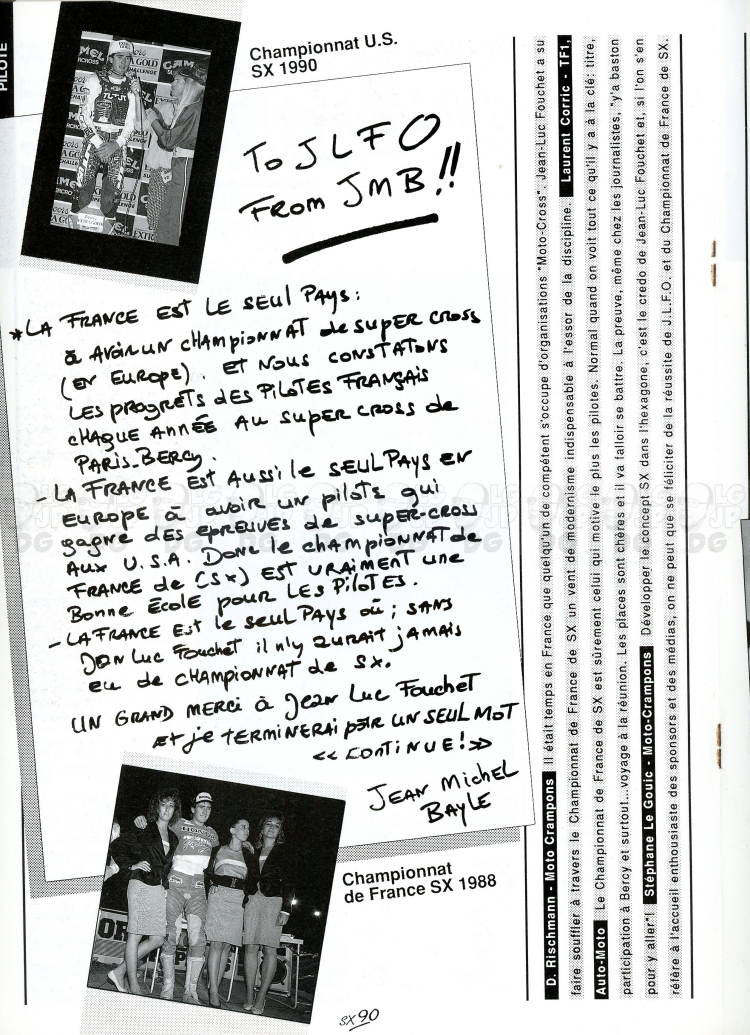 PILOTE
Championnat U.S.
SX 1990
TO JLFO
FROM JMB!!
*LA FRANCE EST LE SEUL PAYS:
à AVOIR UN CHAMPIONNAT de SUPER CROSS
(EN EUROPE). ET NOUS CONSTATONS
LES PROGRETS dES PILOTES FRANÇAIS
CHAQUE ANNÉE AU SUPER CROSS de
PARIS-BERCY.
- LA FRANCE EST AUSSI le SEUL PAYS EN
EUROPE à avoir un pilots qui
gagne des épreuves de super-cross
Aux U.S.A. Donc le championnat de
FRANCE de (SX) EST VRAIMENT une
Bonne École pour LES PILOTES.
- LA FRANCE EST le seul PAYS où; SANS
JEAN Luc Fouchet il n'y aurait jamais
eu de CHAMPIONNAT de SX.
UN GRAND MERCI à Jean Luc Fouchet
Et je TERMINERAI par UN SEUL MOT
<< CONTINUE! >>
JEAN Michel
BAYLE
Championnat
de France SX 1988
SX 90
D. Rischmann - Moto Crampons Il était temps en France que quelqu'un de compétent s'occupe d'organisations "Moto-Cross". Jean-Luc Fouchet a su
faire souffler à travers le Championnat de France de SX un vent de modernisme indispensable à l'essor de la discipline. Laurent Corric - TF1,
Auto-Moto Le Championnat de France de SX est sûrement celui qui motive le plus les pilotes. Normal quand on voit tout ce qu'il y a à la clé: titre,
participation à Bercy et surtout...voyage à la réunion. Les places sont chères et il va falloir se battre. La preuve, même chez les journalistes, "y'a baston
pour y aller"! Stéphane Le Gouic - Moto-Crampons Développer le concept SX dans l'hexagone, c'est le credo de Jean-Luc Fouchet et, si l'on s'en
réfère à l'accueil enthousiaste des sponsors et des médias, on ne peut que se féliciter de la réussite de J.L.F.O. et du Championnat de France de SX.